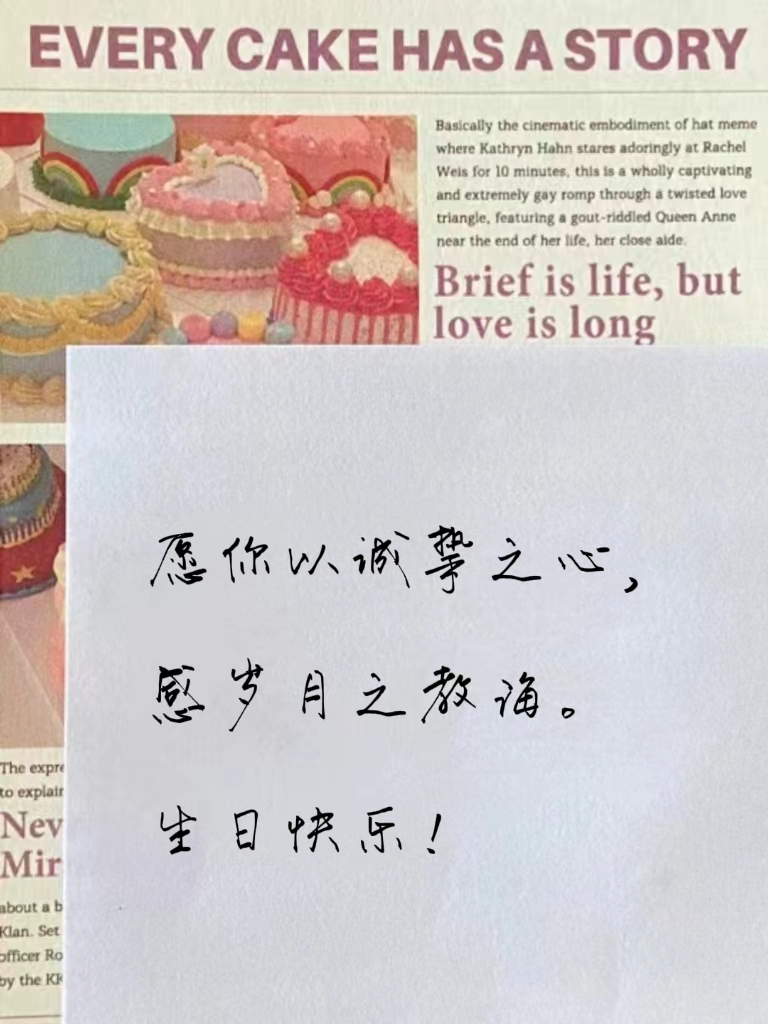 EVERY CAKE HAS A STORY
Basically the cinematic embodiment of hat meme
where Kathryn Hahn stares adoringly at Rachel
Weis for 10 minutes, this is a wholly captivating
and extremely gay romp through a twisted love
triangle, featuring a gout-riddled Queen Anne
near the end of her life, her close aide.
Brief is life, but
love is long
愿你以诚挚之心,
感岁月之教诲。
生日快乐!
The expre
to explain
Nev
Mir
about a b
Klan. Set
officer Ro
by the KK